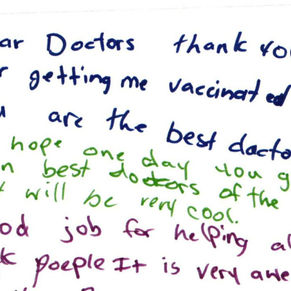 ar Doctors thank you
r getting me vaccinated
u are the best docto
hope one day you g
n best doctors of the
t will be very cool.
od job for helping al
k poeple It is very awe